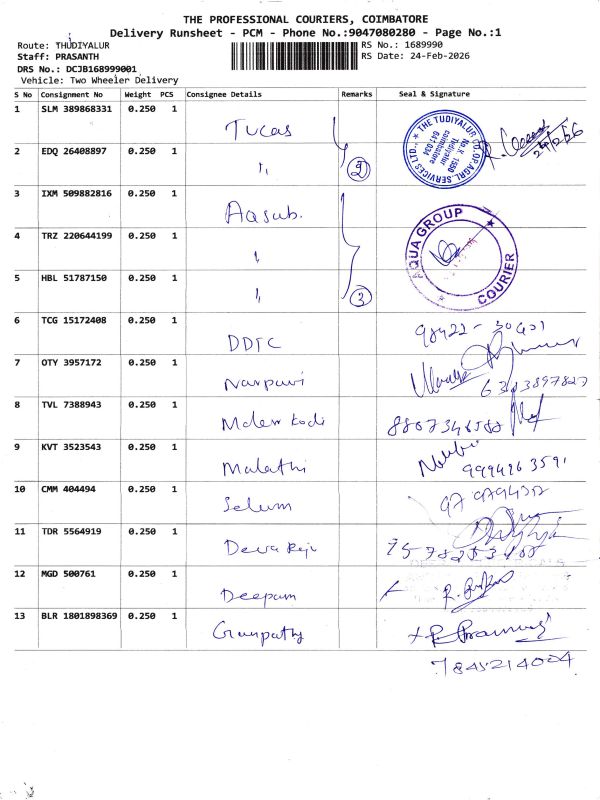 THE PROFESSIONAL COURIERS, COIMBATORE
Delivery Runsheet - PCM - Phone No.:9047080280 - Page No.:1
Route: THUDIYALUR
RS No.: 1689990
Staff: PRASANTH
RS Date: 24-Feb-2026
DRS No.: DCJB168999001
Vehicle: Two Wheeler Delivery
S No Consignment No Weight PCS Consignee Details Remarks Seal & Signature
1 SLM 389868331 0.250 1 Tucas
THE TUDIYALUR CO.OP.AGRL.SERVICES LTD.,
No.K. 1550
Tudiyalur
coimbatore
641 034
2 EDQ 26408897 0.250 1 " 2
3 IXM 509882816 0.250 1 Aasub.
AQUA GROUP
COURIER
4 TRZ 220644199 0.250 1 "
5 HBL 51787150 0.250 1 " 3
6 TCG 15172408 0.250 1 DDTC
7 OTY 3957172 0.250 1
8 TVL 7388943 0.250 1
9 KVT 3523543 0.250 1 Malathi
10 CMM 404494 0.250 1 Selum
11 TDR 5564919 0.250 1 Devaraju
12 MGD 500761 0.250 1 Deepam
13 BLR 1801898369 0.250 1 Gunpathy
7845214004